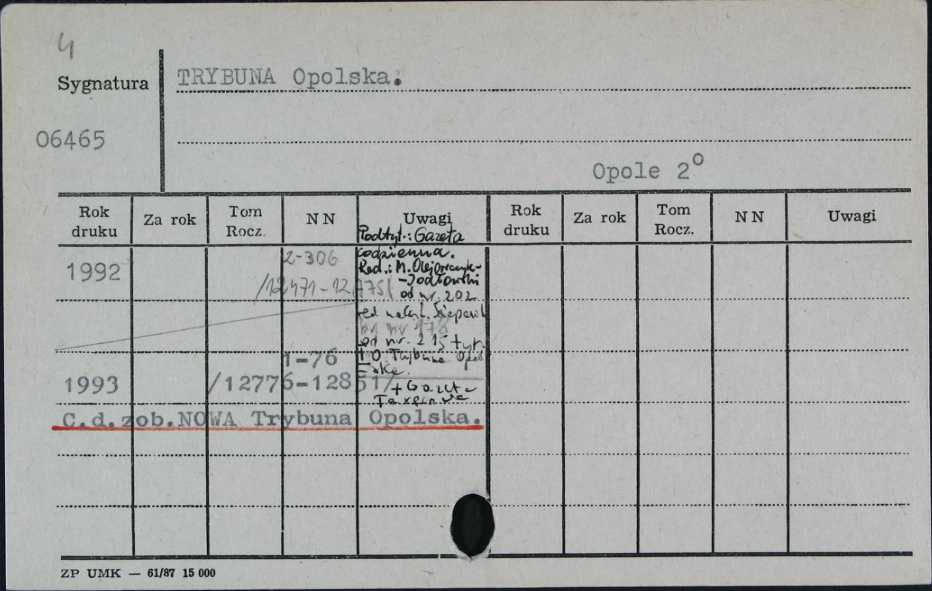 4
Sygnatura
TRYBUNA Opolska.
06465
Opole 2º
Rok druku
Za rok
Tom Rocz.
N N
Uwagi
Rok druku
Za rok
Tom Rocz.
N N
Uwagi
Podtyt.: Gazeta
codzienna.
1992
2-306
Red.: M.
/12471-12775/
od nr. 202
red nacz.
od nr 178
od nr. 215 tyt.
1-76
TO Trybuna
1993
/12776-12851/
+ Gazeta
C.d.zob.NOWA Trybuna Opolska.
ZP UMK — 61/87 15 000